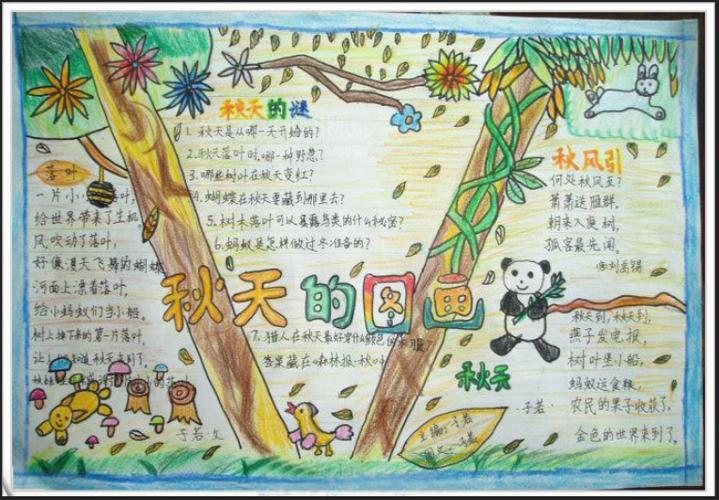 秋天的图画
落叶
一片小 叶,
给世界带来了生机,
风吹动了落叶,
好像漫天飞舞的蝴蝶
河面上漂着落叶,
给小蚂蚁们当小船。
树上掉下来的第一片落叶,
让 知道秋天来到了。
子若·文
秋天的谜
1. 秋天是从哪一天开始的?
2.秋天落叶时,哪一种野
3.哪些树叶在秋天变红?
4.蝴蝶在秋天要藏到哪里去?
5.树木落叶可以暴露鸟类的什么秘密?
6.蚂蚁是怎样做过冬准备的?
7.猎人在秋天最好穿什么颜色的衣服
答案藏在《森林报·秋》
秋风引
何处秋风至?
萧萧送雁群。
朝来入庭树,
孤客最先闻。
唐刘禹锡
秋天
·子若·
秋天到,秋天到,
燕子发电报,
树叶坐小船,
蚂蚁运食粮,
农民的果子收获了,
金色的世界来到了。
主编:子若
图文:子若